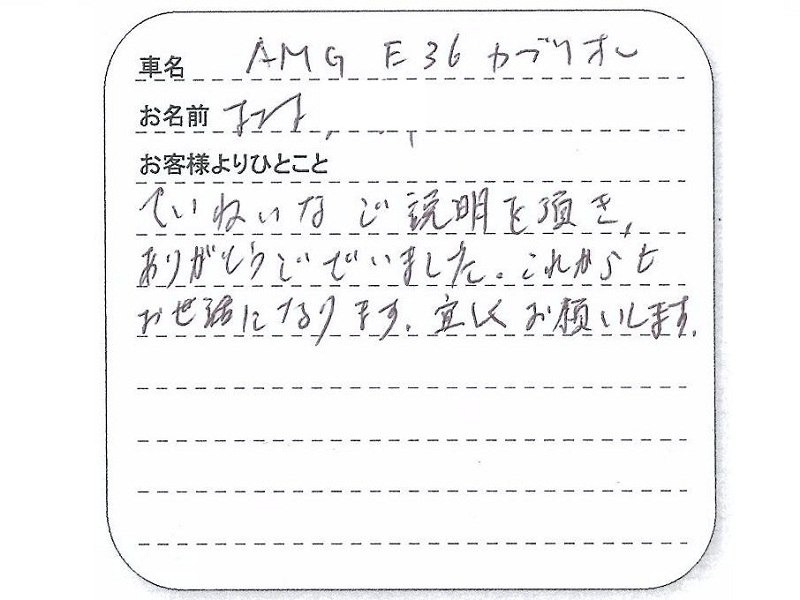 車名 AMG E36 カブリオレ
お名前
お客様よりひとこと
ていねいなご説明を頂き、
ありがとうございました。これからも
お世話になります。宜しくお願いします。